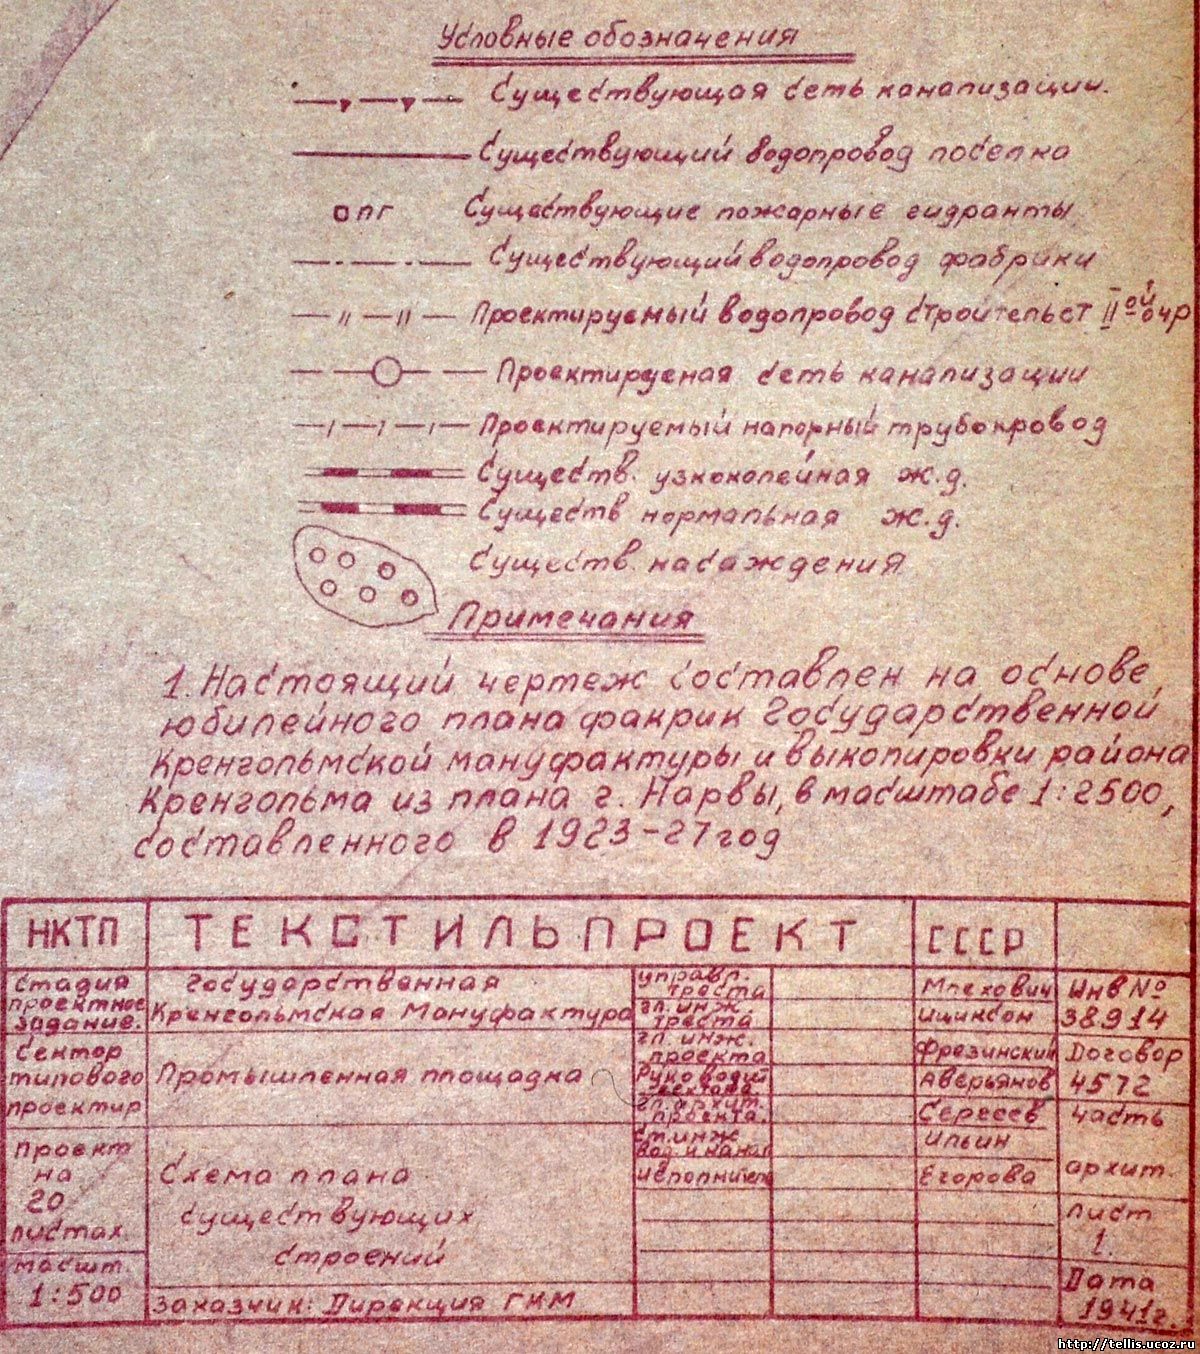 Условные обозначения
Существующая сеть канализации.
Существующий водопровод поселка
ПГ Существующие пожарные гидранты
Существующий водопровод фабрики
Проектируемый водопровод строительст II ой очр
Проектируемая сеть канализации
Проектируемый напорный трубопровод
Существ. узкоколейная ж.д.
Существ нормальная ж.д.
Существ. насаждения
Примечания
1. Настоящий чертеж составлен на основе,
юбилейного плана факрик Государственной
Кренгольмской мануфактуры и выкопировки района
Кренгольма из плана г. Нарвы, в масштабе 1:2500,
составленного в 1923-27 год
НКТП ТЕКСТИЛЬПРОЕКТ СССР
Стадия
проектное
задание.
Государственная
Кренгольмская Мануфактура
управл.
треста
Млехович
Инв №
38914
гл. инж.
треста
Ициксон
Сектор
типового
проектир
Промышленная площадка
гл. инж.
проекта
Фрезинский
Договор
4572
Руководит
сектора
Аверьянов
гл. архит.
проекта.
Сергеев
часть
архит.
Проект
на
20
листах
Схема плана
существующих
строений
ст. инж
вод. и канал
Ильин
исполнитель
Егорова
лист
1.
масшт.
1:500
Заказчик: Дирекция ГКМ
Дата
1941г.
http://tellis.ucoz.ru